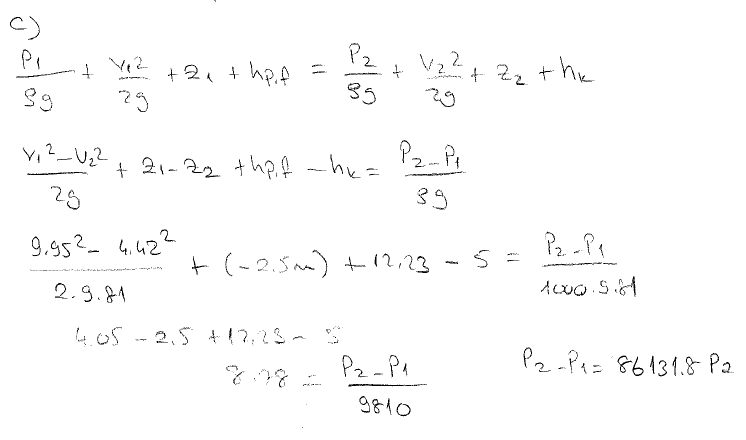 c)
P1/ρg + V1²/2g + z1 + hp,f = P2/ρg + V2²/2g + z2 + hk
V1²-V2²/2g + z1-z2 + hp,f - hk = P2-P1/ρg
9.95² - 4.42²/2.9.81 + (-2.5m) + 12,23 - 5 = P2-P1/1000.9.81
4.05 - 2,5 + 12,23 - 5
8.78 = P2-P1/9810
P2-P1 = 86131.8 Pa